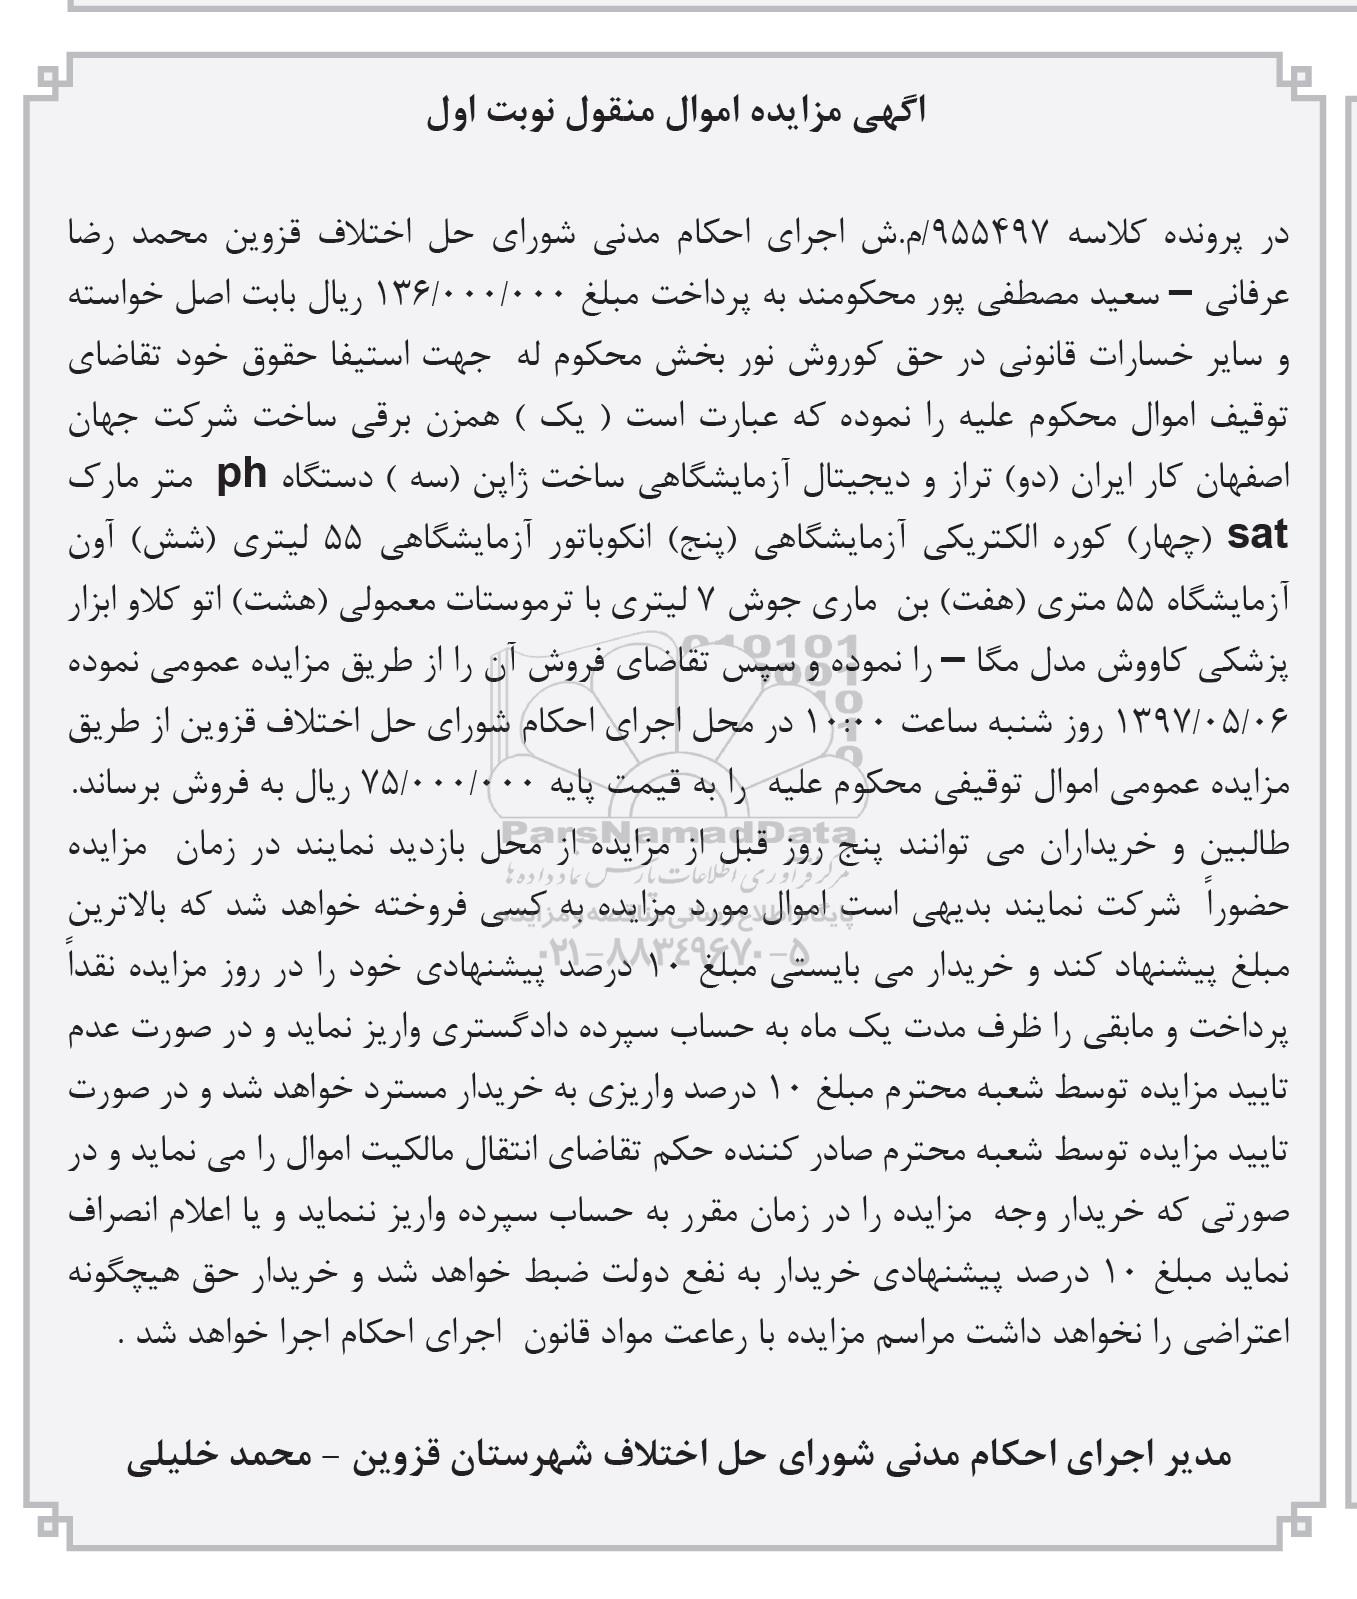 اگهی مزایده اموال منقول نوبت اول
در پرونده کلاسه ۹۵۵۴۹۷/م.ش اجرای احکام مدنی شورای حل اختلاف قزوین محمد رضا
عرفانی – سعید مصطفی پور محکومند به پرداخت مبلغ ۱۳۶/۰۰۰/۰۰۰ ریال بابت اصل خواسته
و سایر خسارات قانونی در حق کوروش نور بخش محکوم له جهت استیفا حقوق خود تقاضای
توقیف اموال محکوم علیه را نموده که عبارت است ( یک ) همزن برقی ساخت شرکت جهان
اصفهان کار ایران (دو) تراز و دیجیتال آزمایشگاهی ساخت ژاپن (سه ) دستگاه ph متر مارک
sat (چهار) کوره الکتریکی آزمایشگاهی (پنج) انکوباتور آزمایشگاهی ۵۵ لیتری (شش) آون
آزمایشگاه ۵۵ متری (هفت) بن ماری جوش ۷ لیتری با ترموستات معمولی (هشت) اتو کلاو ابزار
پزشکی کاووش مدل مگا – را نموده و سپس تقاضای فروش آن را از طریق مزایده عمومی نموده
۱۳۹۷/۰۵/۰۶ روز شنبه ساعت ۱۰:۰۰ در محل اجرای احکام شورای حل اختلاف قزوین از طریق
مزایده عمومی اموال توقیفی محکوم علیه را به قیمت پایه ۷۵/۰۰۰/۰۰۰ ریال به فروش برساند.
طالبین و خریداران می توانند پنج روز قبل از مزایده از محل بازدید نمایند در زمان مزایده
حضوراً شرکت نمایند بدیهی است اموال مورد مزایده به کسی فروخته خواهد شد که بالاترین
مبلغ پیشنهاد کند و خریدار می بایستی مبلغ ۱۰ درصد پیشنهادی خود را در روز مزایده نقداً
پرداخت و مابقی را ظرف مدت یک ماه به حساب سپرده دادگستری واریز نماید و در صورت عدم
تایید مزایده توسط شعبه محترم مبلغ ۱۰ درصد واریزی به خریدار مسترد خواهد شد و در صورت
تایید مزایده توسط شعبه محترم صادر کننده حکم تقاضای انتقال مالکیت اموال را می نماید و در
صورتی که خریدار وجه مزایده را در زمان مقرر به حساب سپرده واریز ننماید و یا اعلام انصراف
نماید مبلغ ۱۰ درصد پیشنهادی خریدار به نفع دولت ضبط خواهد شد و خریدار حق هیچگونه
اعتراضی را نخواهد داشت مراسم مزایده با رعاعت مواد قانون اجرای احکام اجرا خواهد شد .
مدیر اجرای احکام مدنی شورای حل اختلاف شهرستان قزوین - محمد خلیلی
ParsNamadData
مرکز فرآوری اطلاعات پارس نماد داده ها
پایگاه اطلاع رسانی مناقصه و مزایده
۰۲۱-۸۸۳۴۹۶۷۰-۵